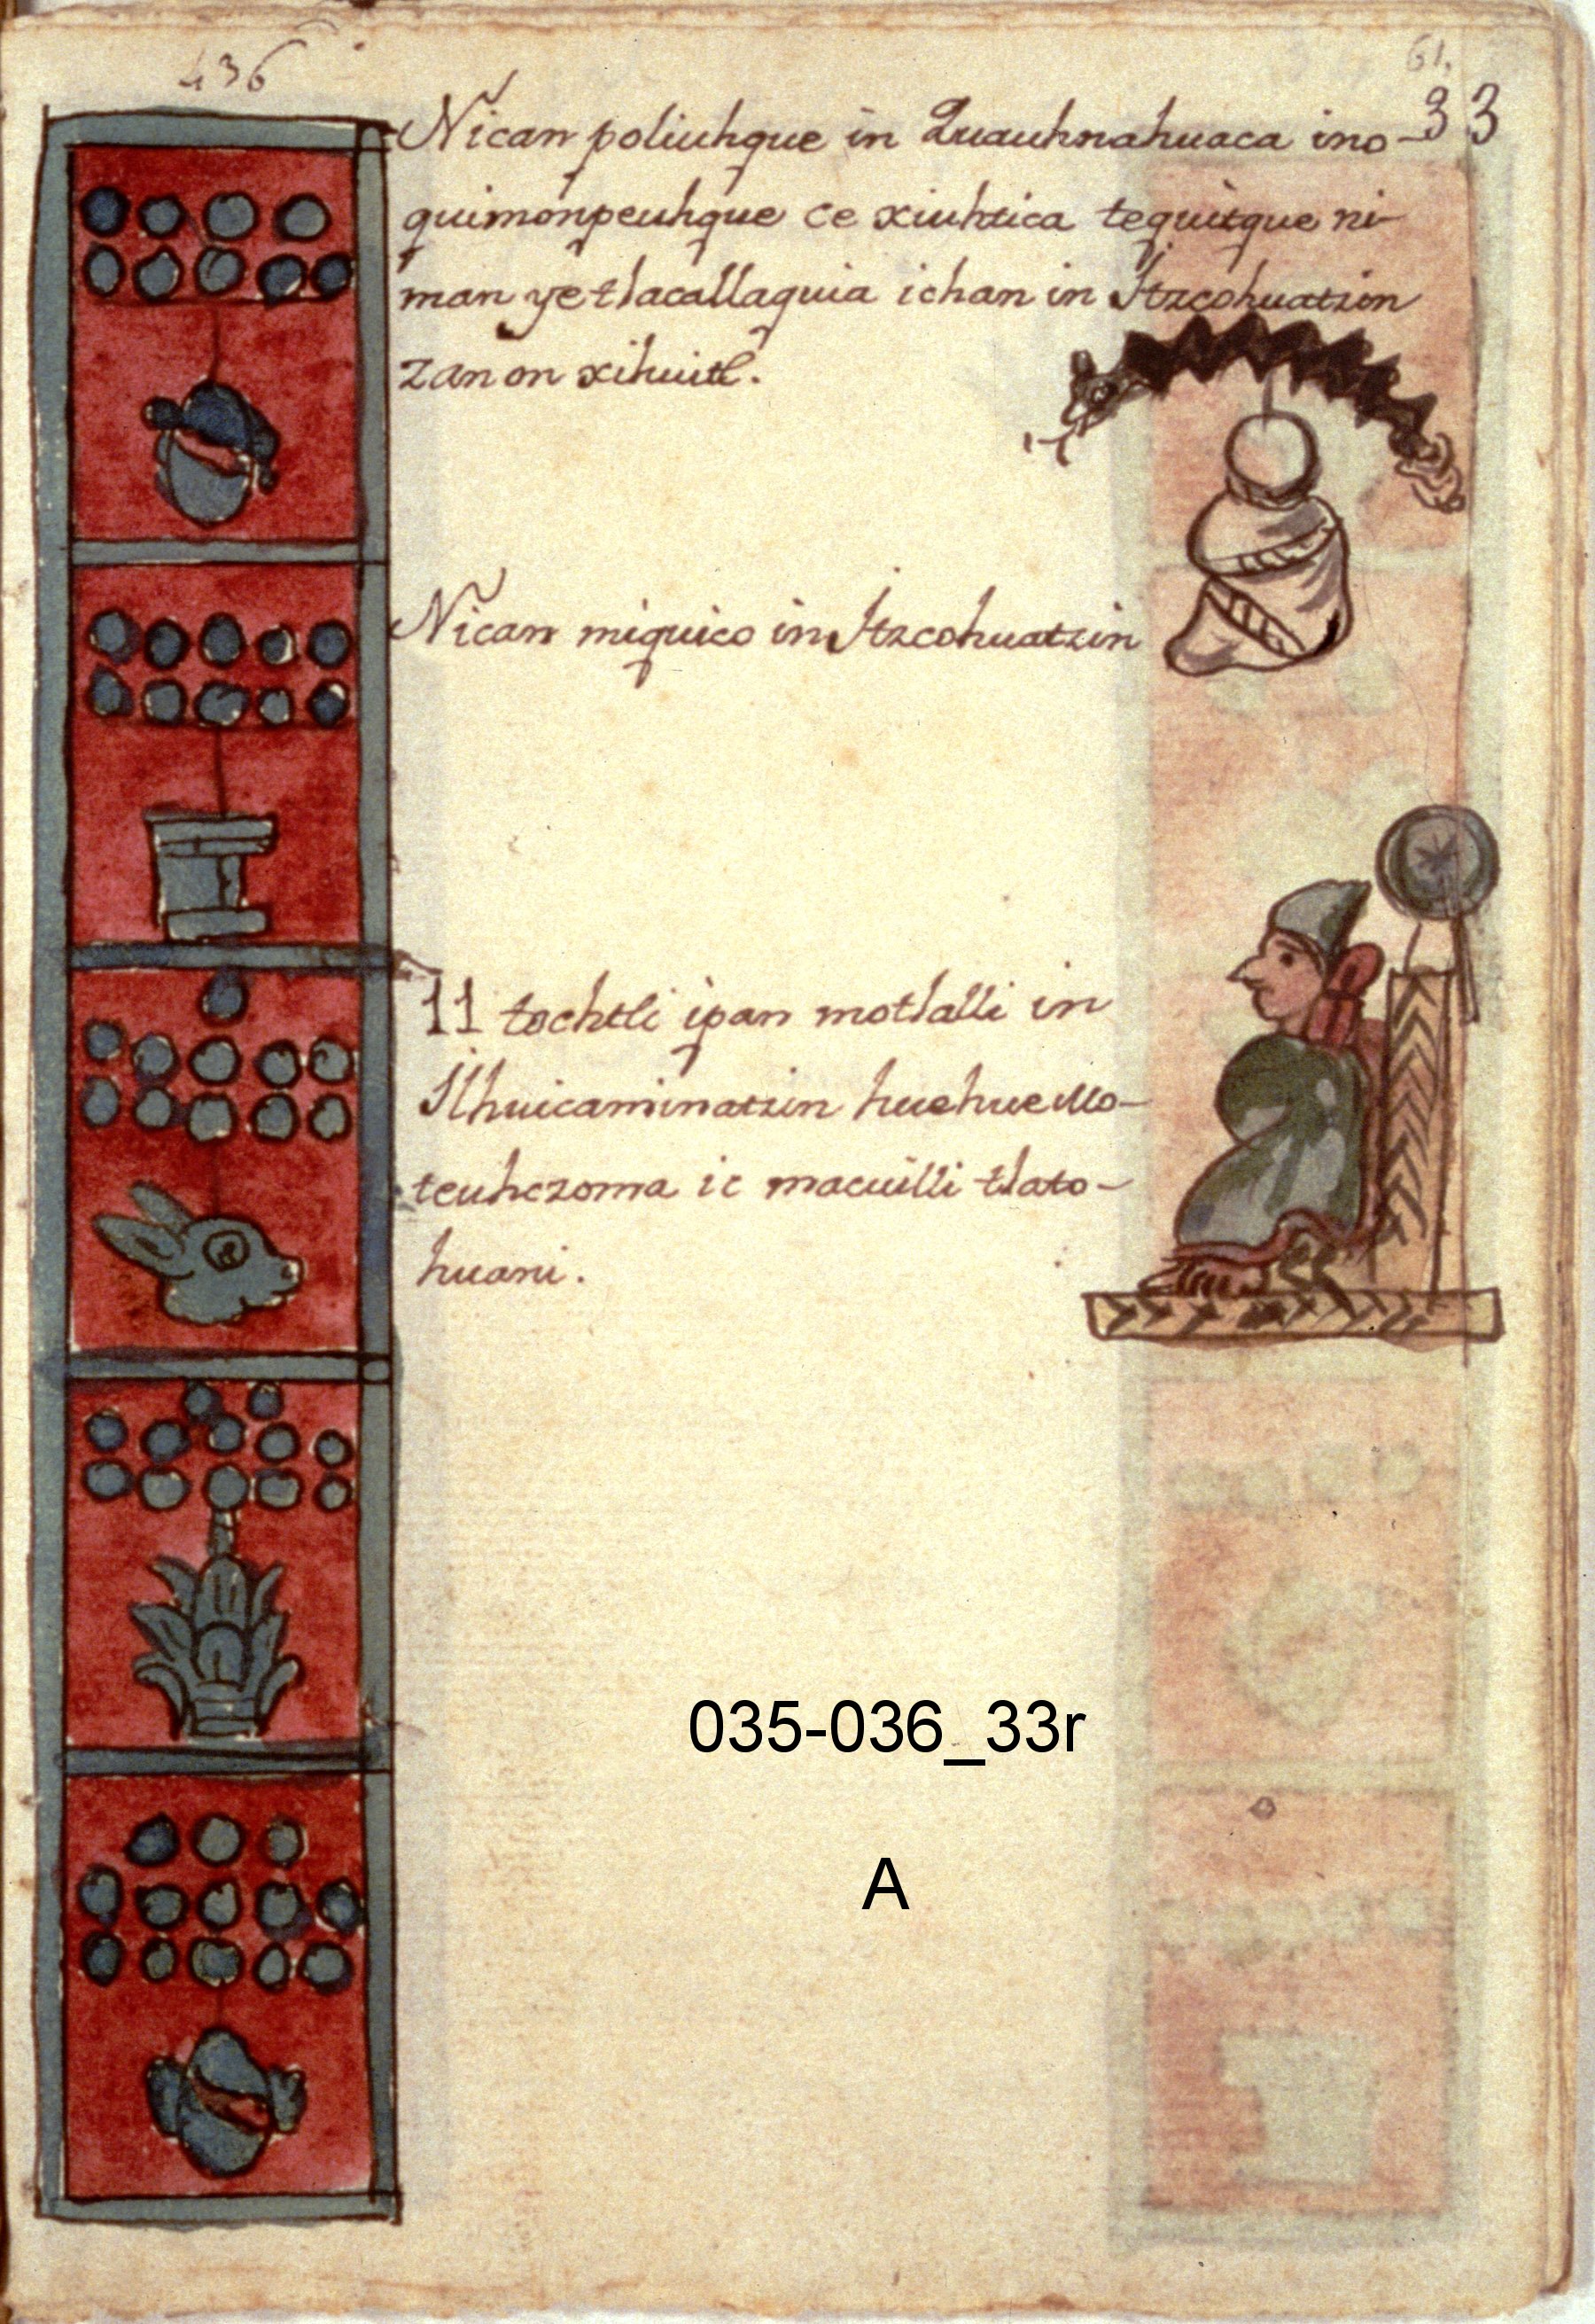 436
61.
33
Nican poliuhque in Quauhnahuaca ino-
quimonpeuhque ce xiuhtica tequitque ni-
man ye tlacallaquia ichan in Itzcohuatzin
zan on xihuitl.
Nican miquico in Itzcohuatzin
11 tochtli ipan motlalli in
Ilhuicaminatzin huehue Mo-
teuhczoma ic macuilli tlato-
huani.
035-036_33r
A